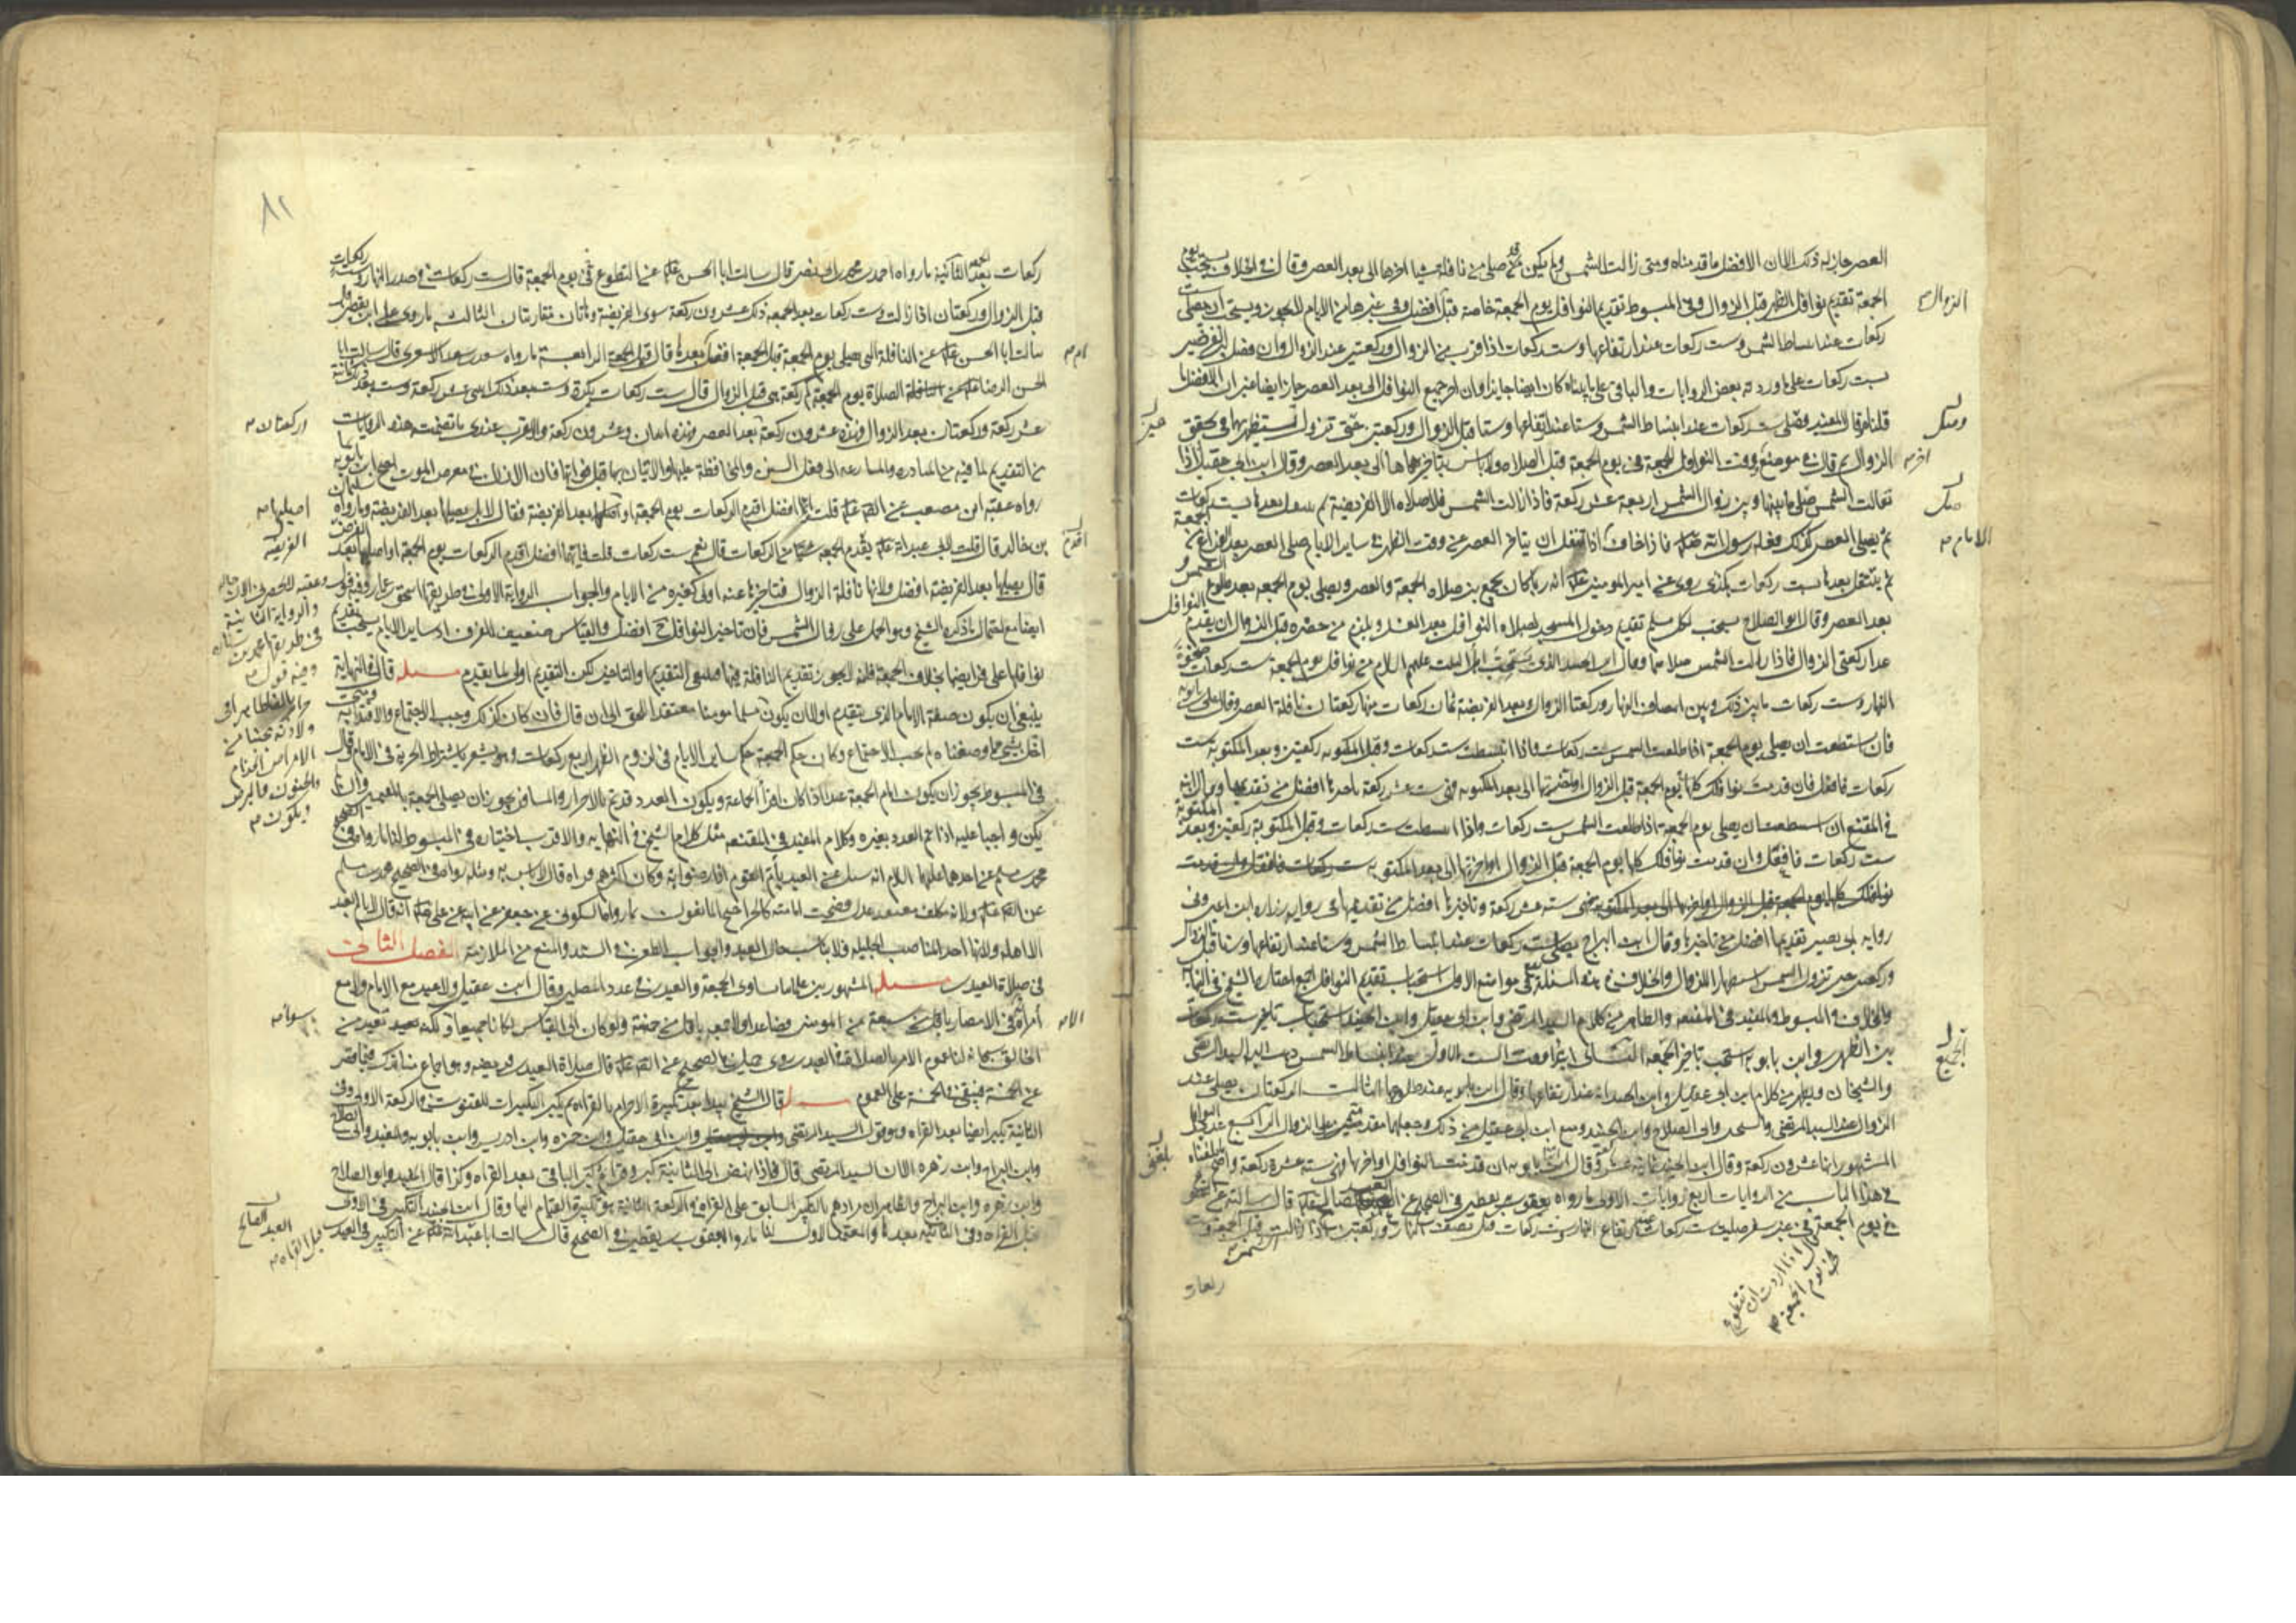 العصر جاز له ذلك الا ان الافضل ما قدمناه ومتى زالت الشمس ولم يكن قد صلى من نافلته شيئا اخرها الى بعد العصر وقال في الخلاف يستحب يوم
الجمعة تقديم نوافل الظهر قبل الزوال وفي المبسوط تقديم النوافل يوم الجمعة خاصة قبل افضل وفي غيرها من الايام لا يجوز ويستحب ان يصلي ست
ركعات عند انبساط الشمس وست ركعات عند ارتفاعها وست ركعات اذا قرب من الزوال وركعتين عند الزوال وان فصل بين الفرضين
بست ركعات على ما ورد به بعض الروايات والباقي على ما بيناه كان ايضا جايزا وان اخر جميع النوافل الى بعد العصر جاز ايضا غير ان الافضل ما
قلناه وقال المفيد فصلى ست ركعات عند انبساط الشمس وستا عند ارتفاعها وستا قبل الزوال وركعتين حتى تزول تستظهر بهما في تحقق
الزوال ثم قال في موضع ووقت النوافل للجمعة في يوم الجمعة قبل الصلاة ولا باس بتاخيرها الى بعد العصر وقال ابن ابي عقيل اذا
تعالت الشمس صلى ما بينها وبين زوال الشمس اربعة عشر ركعة فاذا زالت الشمس فلا صلاة الا الفريضة ثم يتنفل بعدها بست ركعات
ثم يصلي العصر كذلك فعله رسول الله فاذا خاف الامام اذا تنفل ان يتاخر العصر عن وقت الظهر في ساير الايام صلى العصر بعد الفراغ من الجمعة
ثم يتنفل بعدها بست ركعات هكذي روي عن امير المومنين انه ربما كان يجمع بين صلاة الجمعة والعصر ويصلي يوم الجمعة بعد طلوع الشمس و
بعد العصر وقال ابو الصلاح يستحب لكل مسلم تقديم دخول المسجد لصلاة النوافل بعد الغسل ويلزم من حضره قبل الزوال ان يقدم النوافل
عدا ركعتي الزوال فاذا زالت الشمس صلاهما وقال ابن الجنيد الذي يستحب اهل البيت عليهم السلام من نوافل يوم الجمعة ست ركعات ضحوة
النهار وست ركعات ما بين ذلك وبين انتصاف النهار وركعتا الزوال وبعد الفريضة ثمان ركعات منها ركعتان نافلة العصر وقال علي بن بابويه
فان استطعت ان تصلي يوم الجمعة اذا طلعت الشمس ست ركعات واذا انبسطت ست ركعات وقبل المكتوبه ركعتين وبعد المكتوبه ست
ركعات فافعل فان قدمت نوافلك كلها يوم الجمعة قبل الزوال او اخرتها الى بعد المكتوبه فهي ست عشر ركعة تاخيرها افضل من تقديمها وقال ابنه
في المقنع ان استطعت ان تصلي يوم الجمعة اذا طلعت الشمس ست ركعات واذا انبسطت ست ركعات وقبل المكتوبة ركعتين وبعد المكتوبة
ست ركعات فافعل وان قدمت نوافلك كلها يوم الجمعة قبل الزوال او اخرتها الى بعد المكتوبه
فهي ستة عشر ركعة وتاخيرها افضل من تقديمها في رواية زرارة ابن اعين وفي
رواية ابي بصير تقديمها افضل من تاخيرها وقال ابن البراج يصلي ست ركعات عند انبساط الشمس وستا عند ارتفاعها وستا قبل الزوال
وركعتين حين تزول الشمس استظهارا للزوال والخلاف في هذه المسئلة يقع في مواضع الاول استحباب تقديم النوافل اجمع اختاره الشيخ في النهاية
والخلاف والمبسوط والمفيد في المقنعة والظاهر من كلام السيد المرتضى وابن ابي عقيل وابن الجنيد استحباب تاخير ست ركعات
بين الظهرين وابن بابويه يستحب تاخير الجميع الثاني ابتداء وقت الست الاولى عند انبساط الشمس ذهب اليه السيد المرتضى
والشيخان ويظهر من كلام ابن ابي عقيل وابن الجنيد انه عند ارتفاعها وقال ابن بابويه عند طلوعها الثالث الركعتان يصلى عند
الزوال عند السيد المرتضى والشيخين وابي الصلاح وابن الجنيد ومنع ابن ابي عقيل من ذلك وجعلهما مقدمتين على الزوال الرابع عدد النوافل
المشهور انها عشرون ركعة وقال ابن الجنيد ثمانية عشر وقال ابنا بابويه ان قدمت النوافل او اخرها فهي ستة عشرة ركعة واصح ما بلغنا
في هذا الباب من الروايات اربع روايات الاولى ما رواه يعقوب بن يقطين في الصحيح عن العبد الصالح قال سالته عن التطوع
في يوم الجمعة في غير سفر صليت ست ركعات عند ارتفاع النهار وست ركعات قبل نصف النهار وركعتين اذا زالت الشمس قبل الجمعة وست
ركعات
الزوال
اخر
الامام
الجميع
قال اذا اردت ان تتطوع
في يوم الجمعة
٨١
ركعات بعد الجمعة الثانية ما رواه احمد بن محمد بن ابي نصر قال سالت ابا الحسن عن التطوع في يوم الجمعة قال ست ركعات في صدر النهار وست ركعات
قبل الزوال وركعتان اذا زالت وست ركعات بعد الجمعة فذلك عشرون ركعة سوى الفريضة وهاتان متقاربتان الثالث ما روى علي ابن يقطين قال
سالت ابا الحسن عن النافلة التي تصلى يوم الجمعة قبل الجمعة افضل او بعدها قال قبل الجمعة الرابعة ما رواه سعد بن سعد الاشعري قال سالت ابا
الحسن الرضا عن الصلاة يوم الجمعة كم ركعة هي قبل الزوال قال ست ركعات بكرة وست بعد ذلك اثنتي عشر ركعة وست بعد ذلك ثمانية
عشر ركعة وركعتان بعد الزوال فهذه عشرون ركعة وركعتان بعد العصر فهذه اثنان وعشرون ركعة والاقرب عندي ما تضمنته هذه الروايات
من التقديم لما فيه من المبادرة والمسارعة الى فعل السنن والمحافظة عليها والاتيان بها قبل فواتها فان الانسان في معرض الموت احتج ابن بابويه بما
رواه عقبة ابن مصعب عن قلت ايما افضل اقدم الركعات يوم الجمعة او اصليها بعد الفريضة فقال لا بل تصليها بعد الفريضة وما رواه سليمان
بن خالد قال قلت لابي عبد الله اقدم يوم الجمعة شيئا من الركعات قال نعم ست ركعات قلت فايهما افضل اقدم الركعات يوم الجمعة او اصليها بعد الفريضة
قال تصليها بعد الفريضة افضل ولانها نافلة الزوال فتاخيرها عنه اولى كغيره من الايام والجواب الرواية الاولى في طريقها اسحق بن عمار وفيه قول
ايضا مع احتمال ما ذكره الشيخ وهو الحمل على زوال الشمس فان تاخير النوافل ح افضل والقياس ضعيف للفرق اذ ساير الايام يستحب تقديم
نوافلها على فرايضها بخلاف الجمعة فانه يجوز تقديم النافلة فيها فتساوى التقديم والتاخير لكن التقديم اولى لما تقدم مسئلة قال في النهاية
ينبغي ان يكون صفة الامام الذي يتقدم اولا ان يكون مسلما مومنا معتقدا للحق الى ان قال فان كان كذلك وجب الاجتماع والاقتداء به ومتى
اخل بشيء مما وصفناه لم يجب الاجتماع وكان حكم الجمعة حكم ساير الايام في لزوم الظهر اربع ركعات وهو يشعر باشتراط الحرية في الامام وقال
في المبسوط يجوز ان يكون امام الجمعة عبدا اذا كان اقرأ الجماعة ويكون العدد قد تم بالاحرار والمسافر يجوز ان يصلي الجمعة بالمقيمين وان لم
يكن واجبا عليه اذا تم العدد بغيره وكلام المفيد في المقنعة مثل كلام الشيخ في النهاية والاقرب اختياره في المبسوط لنا ما رواه في الصحيح
محمد بن مسلم عن احدهما عليهما السلام انه سئل عن العبد يأم القوم اذا رضوا به وكان اكثرهم قراة قال لا باس به ومثله رواه في الصحيح محمد بن مسلم
عن ولانه مكلف معتمد عدل فصحت امامته كالحر احتج المانعون بما رواه السكوني عن جعفر عن ابيه عن علي انه قال لا يأم العبد
الا اهله ولانها احد المناصب الجليلة فلا يناسب حال العبد والجواب الطعن في السند والمنع من الملازمة الفصل الثاني
في صلاة العيدين مسئلة المشهور بين علمائنا تساوي الجمعة والعيدين في عدد المصلين وقال ابن عقيل ولا عيد مع الامام ولا مع
امرائه في الامصار باقل من سبعة من المومنين فصاعدا ولا جمعة باقل من خمسة ولو كان الى القياس لكانا جميعا سواء ولكنه تعبد من
الخالق سبحانه لنا عموم الامر بالصلاة في العيدين روى جميل في الصحيح عن قال صلاة العيدين فريضة وهو اجماع منا فيقتصر
عن الخمسة فيبقى الخمسة على العموم مسئلة قال الشيخ يبدا بعد تكبيرة الاحرام بالقراءة ثم يكبر التكبيرات للقنوت في الركعة الاولى وفي
الثانية يكبر ايضا بعد القراءة وهو قول السيد المرتضى وابن ابي عقيل وابن حمزة وابن ادريس وابن بابويه والمفيد وابي الصلاح
وابن البراج وابن زهرة الا ان السيد المرتضى قال فاذا نهض الى الثانية كبر وقرأ ثم كبر الباقي بعد القراءة وكذا قال المفيد وابو الصلاح
وابن زهرة وابن البراج والظاهر ان مرادهم بالتكبير السابق على القراءة في الركعة الثانية هو تكبيرة القيام اليها وقال ابن الجنيد التكبير في الاولى
قبل القراءة وفي الثانية بعدها والمعتمد الاول لنا ما رواه يعقوب بن يقطين في الصحيح قال سالت ابا عبد الله عن التكبير في العيدين
او ركعتان
اصليها
الفريضة
والرواية الثانية
وفيه قول
الامراض الجذام
والجنون والبرص
ويكون
سواء
العبد الصالح
قبل القراءة